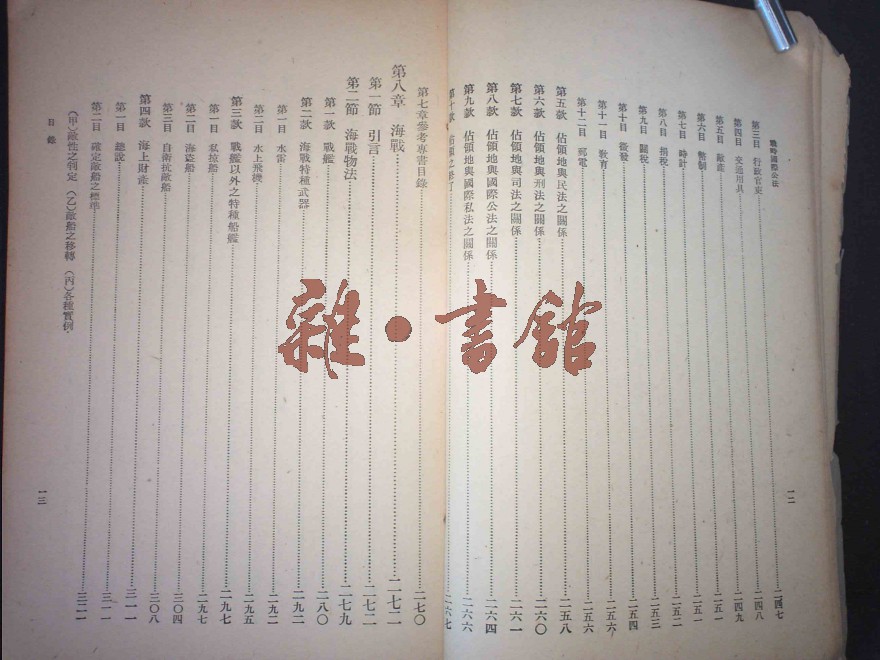 戰時國際公法
第三目 行政官吏 二四七
第四目 交通用具 二四八
第五目 敵產 二四九
第六目 幣制 二五一
第七目 時計 二五一
第八目 捐稅 二五二
第九目 關稅 二五三
第十目 徵發 二五四
第十一目 教育 二五六
第十二目 郵電 二五六
第五款 佔領地與民法之關係 二五八
第六款 佔領地與刑法之關係 二六〇
第七款 佔領地與司法之關係 二六一
第八款 佔領地與國際公法之關係 二六四
第九款 佔領地與國際私法之關係 二六六
第十款 佔領之終了 二六七
一二
第七章參考專書目錄 二七〇
第八章 海戰 二七二
第一節 引言 二七二
第二節 海戰物法 二七九
第一款 戰艦 二八〇
第二款 海戰特種武器 二九二
第一目 水雷 二九二
第二目 水上飛機 二九五
第三款 戰艦以外之特種船艦 二九七
第一目 私掠船 二九七
第二目 海盜船 三〇四
第三目 自衛抗敵船 三〇八
第四款 海上財產 三一一
第一目 總說 三一一
第二目 確定敵船之標準 三二一
(甲)敵性之判定 (乙)敵船之移轉 (丙)各種實例
目錄
一三
雜·書館